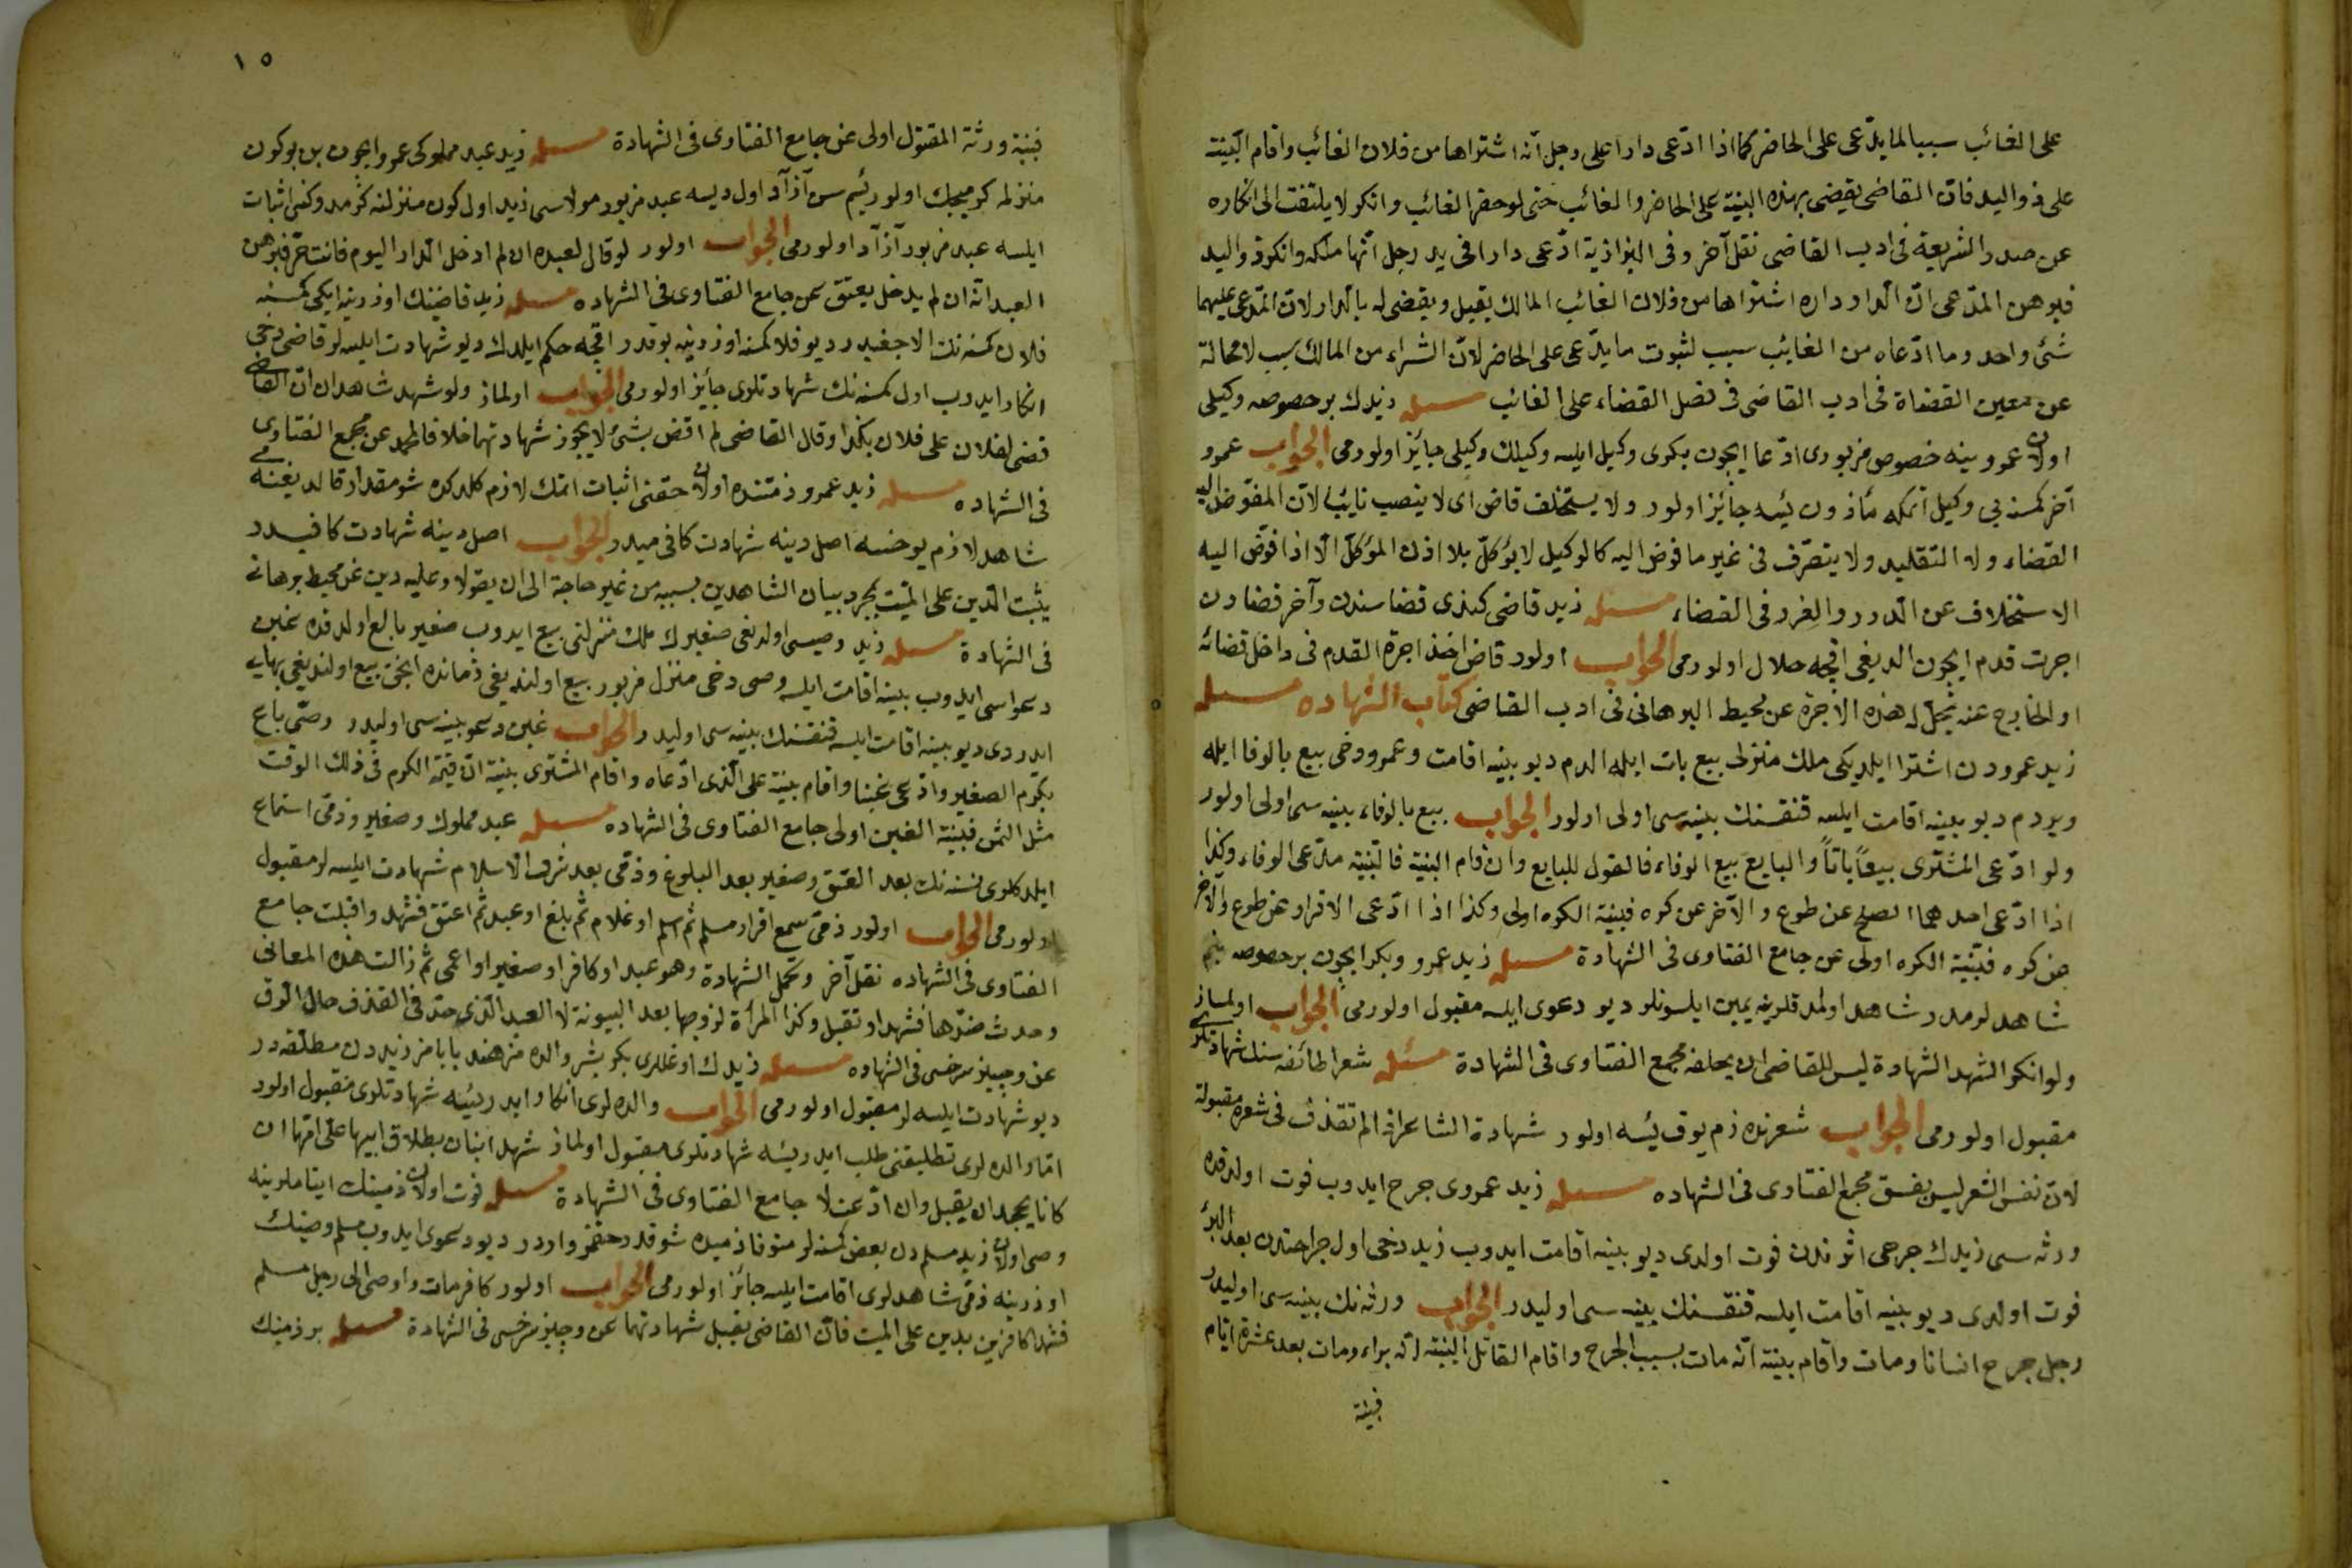 على الغائب سببا لما يدّعى على الحاضر كما اذا ادّعى دارا على رجل انّه اشتراها من فلان الغائب واقام البيّنة
على ذواليد فانّ القاضى يقضى بهذه البيّنة على الحاضر والغائب حتى لو حضر الغائب وانكر لا يلتفت الى انكاره
عن صدر الشريعة فى ادب القاضى نقل آخر وفى البزازية ادّعى دارا فى يد رجل انّها ملكه وانكر ذواليد
فبرهن المدّعى انّ الدار داره اشتراها من فلان الغائب المالك يقبل ويقضى له بالدار لانّ المدّعى عليهما
شئ واحد وما ادّعاه من الغايب سبب لثبوت ما يدّعى على الحاضر لانّ الشراء من المالك سبب لا محالة
عن معين القضاة فى ادب القاضى فى فصل القضاء على الغائب مسئله زيدك بر خصوصه وكيلى
اولان عمرو ينه خصوص مزبورى ادّعا ايچون بكرى وكيل ايلسه وكيلك وكيلى جائز اولورمى الجواب عمرو
آخر كمسنه يى وكيل اتمكه مأذون ئيسه جائز اولور ولا يستخلف قاض اى لا ينصب نايبا لانّ المفوّض اليه
القضاء وله التقليد ولا يتصرّف فى غير ما فوض اليه كالوكيل لا يوكّل بلا اذن الموكّل الّا اذا فوّض اليه
الاستخلاف عن الدرر والغرر فى القضاء مسئله زيد قاضى كندى قضاسندن وآخر قضادن
اجرت قدم ايچون الديغى اقچه حلال اولورمى الجواب اولور قاض اخذ اجرة القدم فى داخل قضائه
او الخارج عنه تحلّ له هذه الاجرة عن محيط البرهانى فى ادب القاضى كتاب الشهاده مسئله
زيد عمرودن اشترا ايلديكى ملك منزلى بيع بات ايله الدم ديو بينه اقامت وعمرو دخى بيع بالوفا ايله
ويردم ديو بينه اقامت ايلسه قنقسنك بينه سى اولى اولور الجواب بيع بالوفاء بينه سى اولى اولور
ولو ادّعى المشترى بيعاً باتاً والبايع بيع الوفاء فالقول للبايع وان قام البنية فالبيّنة مدّعى الوفاء وكذا
اذا ادّعى احدهما الصلح عن طوع والآخر عن كره فبيّنة الكره اولى وكذا اذا ادّعى الاقرار عن طوع والآخر
عن كره فبيّنة الكره اولى عن جامع الفتاوى فى الشهادة مسئله زيد عمرو وبكر ايچون بر خصوصه بنم
شاهدلرمدر شاهد اولمدقلرينه يمين ايلسونلر ديو دعوى ايلسه مقبول اولورمى الجواب اولماز
ولو انكر الشهد الشهادة ليس للقاضى ان يحلفه مجمع الفتاوى فى الشهادة مسئله شعرا طائفه سنك شهادتلرى
مقبول اولورمى الجواب شعرنده ذم يوق ئيسه اولور شهادة الشاعر اذا لم تقذف فى شعره مقبولة
لانّ نفس الشعر ليس بفسق مجمع الفتاوى فى الشهاده مسئله زيد عمروى جرح ايدوب فوت اولدقده
ورثه سى زيدك جرحى اثرندن فوت اولدى ديو بينه اقامت ايدوب زيد دخى اول جراحتدن بعد البرء
فوت اولدى ديو بينه اقامت ايلسه قنقسنك بينه سى اوليدر الجواب ورثه نك بينه سى اوليدر
رجل جرح انسانا ومات واقام بينة انّه مات بسبب الجرح واقام القاتل البيّنة انّه براء ومات بعد عشرة ايّام
فبينة
١٥
فبينة ورثة المقتول اولى عن جامع الفتاوى فى الشهادة مسئله زيد عبد مملوكى عمرو ايچون بن بو كون
منزلمه كرميجك اولورئيم سن آزاد اول ديسه عبد مزبور مولاسى زيد اول كون منزلنه كرمدوكنى اثبات
ايلسه عبد مزبور آزاد اولورمى الجواب اولور لو قال لعبده ان لم ادخل الدار اليوم فانت حرّ فبرهن
العبد انّه ان لم يدخل يعتق عن جامع الفتاوى فى الشهاده مسئله زيد قاضينك اوزرينه ايكى كمسنه
فلان كمسنه نك الاجغيدر ديو فلان كمسنه اوزرينه بوقدر اقچه حكم ايلدك ديو شهادت ايلسه لر قاضى دخى
انكار ايدوب اول كمسنه نك شهادتلرى جائز اولورمى الجواب اولماز ولو شهد شاهدان انّ القاضى
قضى لفلان على فلان بكذا وقال القاضى لم اقض بشئ لا يجوز شهادتهما خلافا لمحمد عن مجمع الفتاوى
فى الشهاده مسئله زيد عمرو ذمتنده اولان حقنى اثبات اتمك لازم كلدكده شو مقدار قالديغنه مى
شاهد لازم يوخسه اصل دينه شهادت كافى ميدر الجواب اصل دينه شهادت كافيدر
يثبت الدّين على الميّت بمجرد بيان الشاهدين بسببه من غير حاجة الى ان يقولا وعليه دين عن محيط برهانى
فى الشهادة مسئله زيد وصيسى اولديغى صغيرك ملك منزلنى بيع ايدوب صغير بالغ اولدقده غبن
دعواسى ايدوب بينه اقامت ايلسه وصى دخى منزل مزبور بيع اولنديغى زمانده انجق بيع اولنديغى بهايه
ايدردى ديو بينه اقامت ايلسه قنقسنك بينه سى اوليدر الجواب غبن دعو بينه سى اوليدر وصّى باع
كرم الصغير وادّعى غبنا واقام بينة على الّذى ادّعاه واقام المشترى بينة انّ قيمة الكرم فى ذلك الوقت
مثل الثمن فبينة الغبن اولى جامع الفتاوى فى الشهاده مسئله عبد مملوك وصغير وذمّى استماع
ايلدكلرى نسنه نك بعد العتق وصغير بعد البلوغ وذمّى بعد شرف الاسلام شهادت ايلسه لر مقبول
اولورمى الجواب اولور ذمّى سمع اقرار مسلم ثم اسلم او غلام ثم بلغ او عبد ثم اعتق فشهد واقبلت جامع
الفتاوى فى الشهاده نقل آخر وتحمّل الشهادة وهو عبد او كافر او صغير او اعمى ثم زالت هذه المعانى
وحدث ضدّها فشهدوا تقبل وكذا المرأة لزوجها بعد البينونة لا العبد الّذى حدّ فى القذف حال الرق
عن وجيز سرخسى فى الشهاده مسئله زيدك اوغللرى بكر بشر والده مز هند بابامز زيددن مطلّقه در
ديو شهادت ايلسه لر مقبول اولورمى الجواب والده لرى انكار ايدرئيسه شهادتلرى مقبول اولور
امّا والده لرى تطليقنى طلب ايدرئيسه شهادتلرى مقبول اولماز شهد ابنان بطلاق ابيها على امّها ان
كانا يجحدان يقبل وان ادّعت لا جامع الفتاوى فى الشهادة مسئله فوت اولان ذمينك ايتاملرينه
وصى اولان زيد مسلمدن بعض كمسنه لر متوفا ذميده شو قدر حقمز واردر ديو دعوى ايدوب مسلم وصينك
اوزرينه ذمّى شاهدلرى اقامت ايلسه جائز اولورمى الجواب اولور كافر مات واوصى الى رجل مسلم
فشهد كافرين بدين على الميت فانّ القاضى يقبل شهادتهما عن وجيز سرخسى فى الشهادة مسئله بر ذمينك